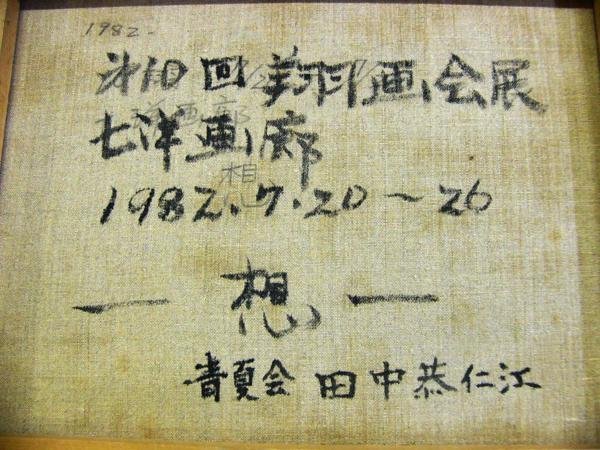 1982-
第10回翔画会展
七洋画廊
洋画廊
想
1982.7.20～26
― 想 ―
青夏会 田中恭仁江